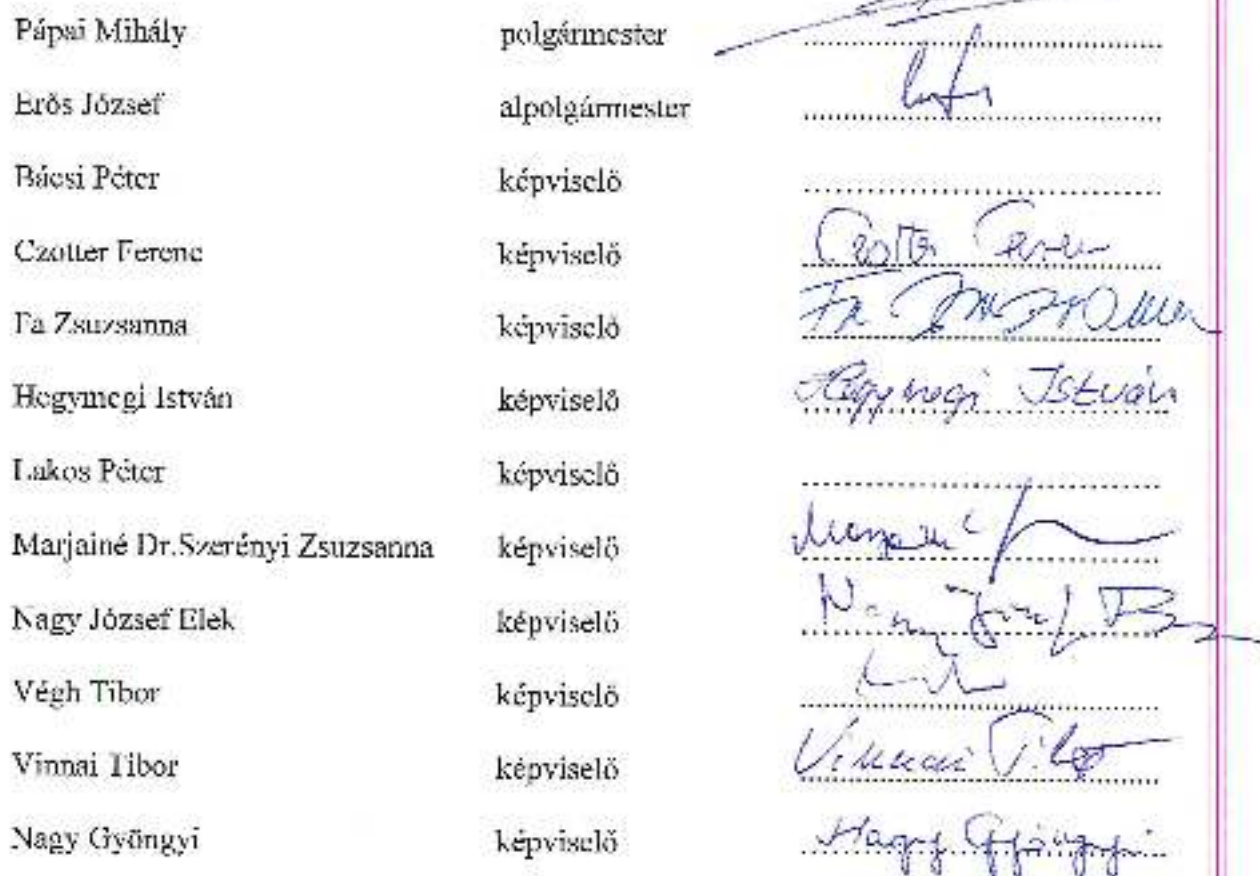 Pápai Mihály polgármester
Erős József alpolgármester
Bácsi Péter képviselő
Czotter Ferenc képviselő Czotter Ferenc
Fa Zsuzsanna képviselő Fa Zsuzsanna
Hegymegi István képviselő Hegymegi István
Lakos Péter képviselő
Marjainé Dr.Szerényi Zsuzsanna képviselő
Nagy József Elek képviselő Nagy József
Végh Tibor képviselő
Vinnai Tibor képviselő Vinnai Tibor
Nagy Gyöngyi képviselő Nagy Gyöngyi